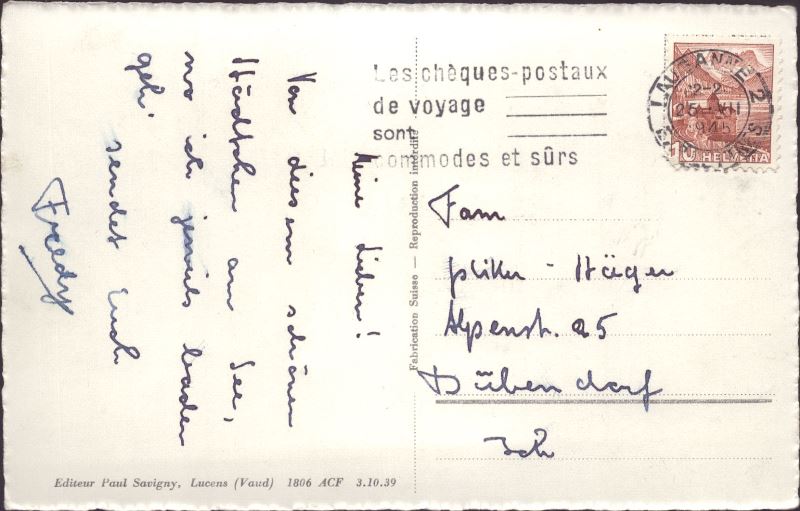 Les chèques-postaux
de voyage
sont
commodes et sûrs
LAUSANNE 2
25-VII
1945
10 HELVETIA
Meine Lieben!
Von diesem schönen
Städtchen am See,
wo ich jeweils baden
geh'
sendet Euch
Freedy
Fabrication Suisse — Reproduction interdite
Fam.
Häger
Alpenstr. 25
Dübendorf
Zch
Editeur Paul Savigny, Lucens (Vaud) 1806 ACF 3.10.39